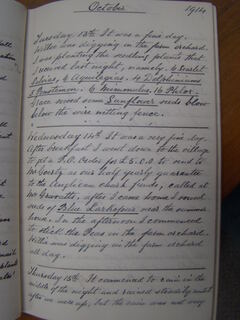 October 1914
Tuesday 13th It was a fine day.
Willie was digging in the farm orchard.
I was planting the seedling plants that
I received last night, namely, 6 Scarlet
Salvias, 6 Aquilegias, 4 Delphiniums
Penstemon, 6 Mimmulus, 16 Phlox.
Grace sowed some Sunflower seeds below
below the wire netting fence.
Wednesday 14th It was a very fine day.
After breakfast I went down to the village
to get a P.O. Order for £5.0.0 to send to
Mr as our half yearly guarantee
to the Anglican church funds, called at
Mr after I came home I sowed
some of Blue Larkspurs near the summer
house. In the afternoon I commenced
to stick the Peas in the farm orchard.
Willie was digging in the farm orchard
all day.
Thursday 15th It commenced to rain in the
middle of the night and rained steadily until
after we were up, but the rain was not very